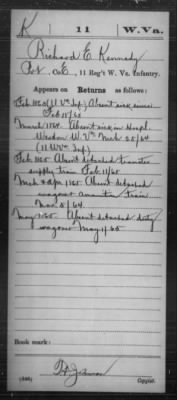 K | 11 | W. Va.
Richard E. Kennedy
Pvt., Co. E, 11 Reg't W. Va. Infantry.
Appears on Returns as follows:
Feb (11 W Va Inf) Absent sick since
Feb 15/65
March 1864. Absent sick in Hospl.
W. Va. Mch 25/64
(11 W Va Inf)
Feb 1865 Absent detached
supply train Feb 11/65
Mch & Apr 1865 Absent detached
wagoner train
Mar 5/64
May 1865 Absent detached duty
wagoner May 1/65
Book mark:
(546)
Copyist.